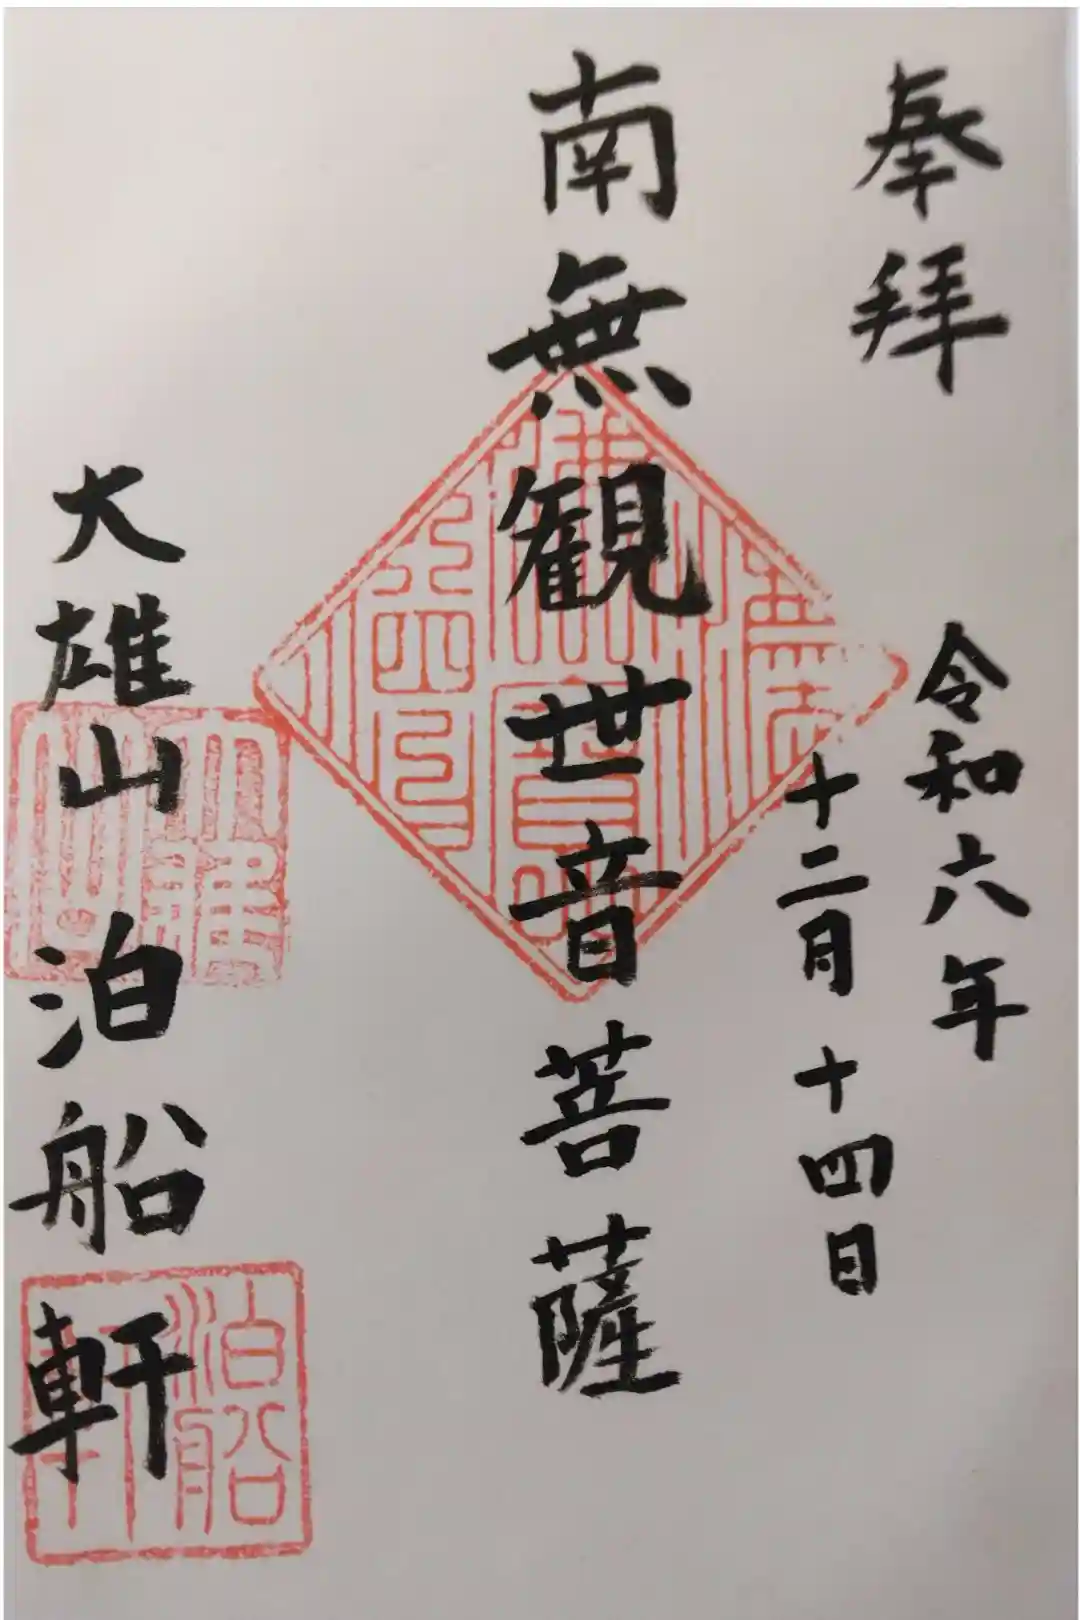 奉拝
令和六年
十二月十四日
南無観世音菩薩
大雄山泊船軒
泊船軒